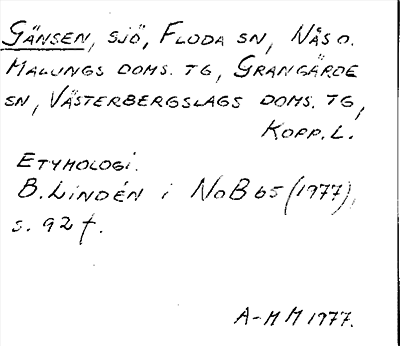 GÄNSEN, SJÖ, FLODA SN, NÅS O.
MALUNGS DOMS. TG, GRANGÄRDE
SN, VÄSTERBERGSLAGS DOMS. TG,
KOPP. L.
ETYMOLOGI.
B. LINDÉN i NoB 65 (1977),
s. 92 f.
A-MM 1977.